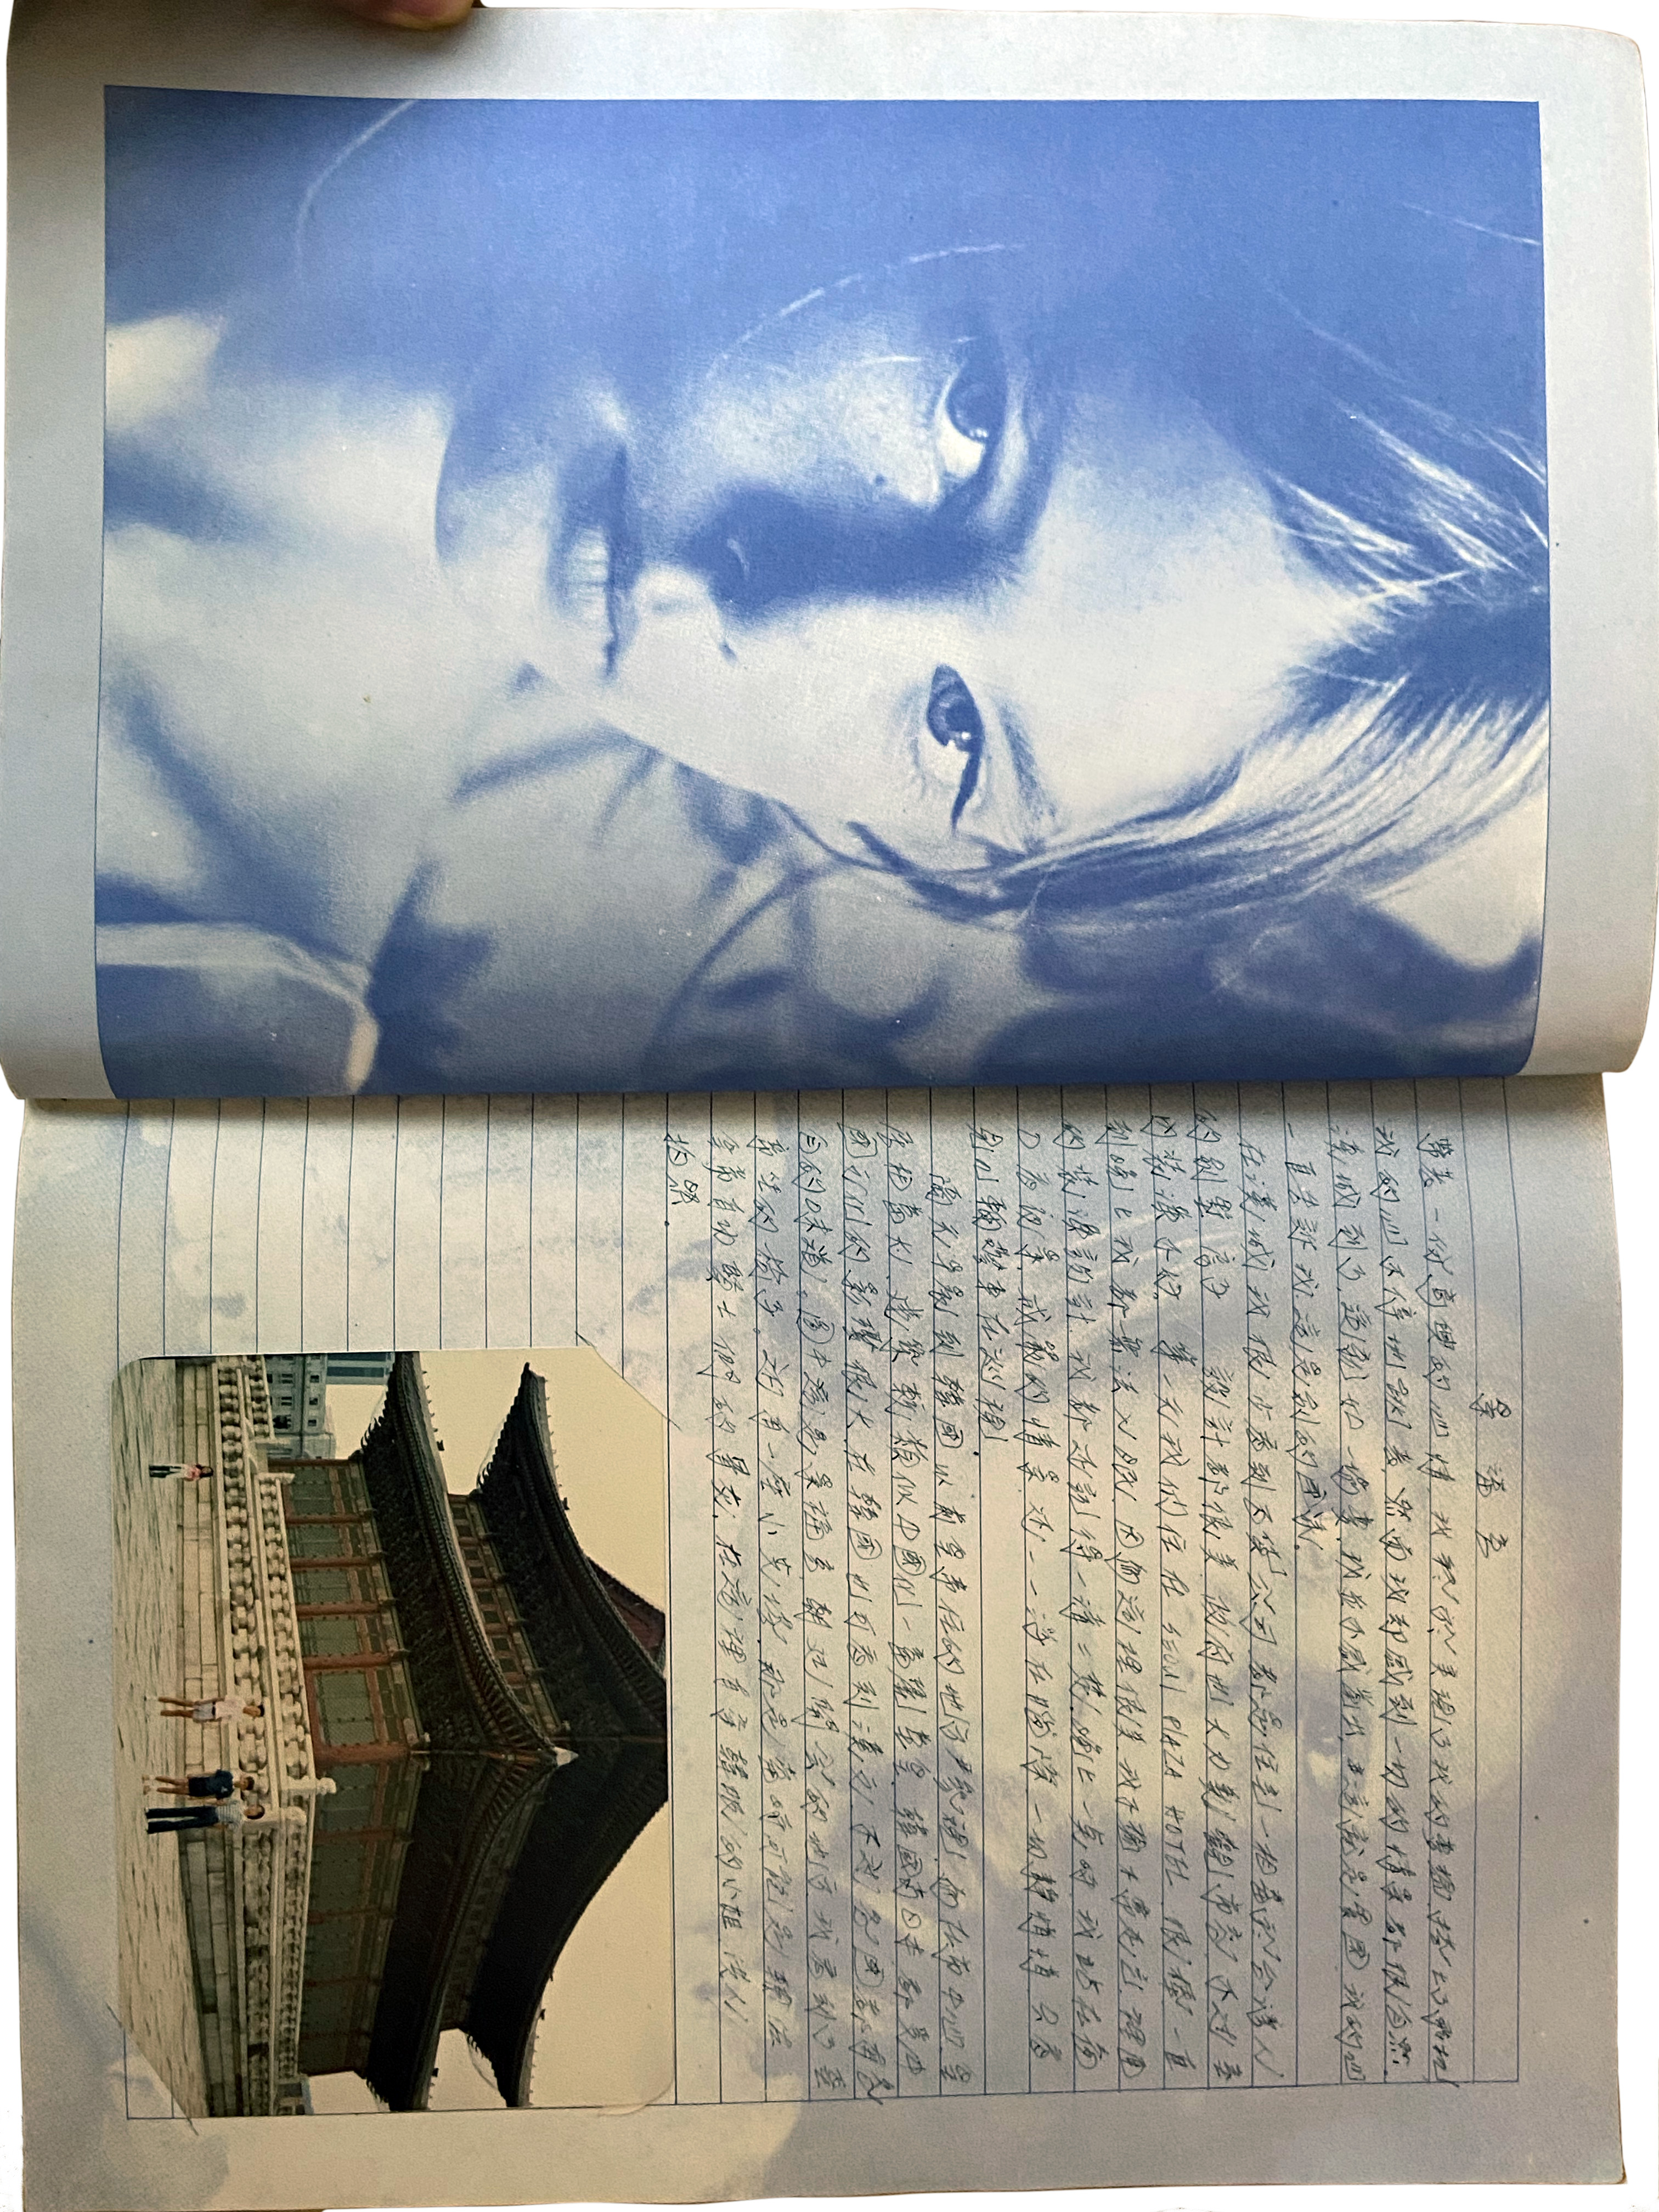 景福宮
帶著一份高興的心情，我終於實現了我的夢，搭上了飛機
我的心不停地跳著，然而我卻感到一切的情景都很自然．
漢城到了，這就如一場夢，我並不感當出，這就是異國，我的心
一直告訴我，這是別的國家．
在漢城我很少看到百貨公司，都是住宅，相當於台灣人
的別墅．房子 設計都很美，政府也大力美觀市容，不過室
內裝潢不好。第一天我們住在 SEOUL PLAZA HOTEL 很棒，一直
到晚上我都無法入眠，因為這裡很美，我不斷走走，裡面
的裝潢設計，我都還記得一清二楚．晚上一點時我站在窗
口看夜景，戒嚴的情景，還一一浮在腦際，一切靜悄悄，只看
見八輛警車在巡視．
隔天早晨到韓國以前皇帝住的地方參觀，而在市中心．皇
居相當大，建築較類似中國化，富麗堂皇．韓國與日本都受中
國文化的影響很大，在韓國也可看到漢文，不過各國都有各
自的味道。圖中這是景福宮，朝廷開會的地方，我看到了皇
帝坐的椅子。還有一座小克塔，那是當時可能是
的骨灰．在這裡有穿韓服的小姐，供人
拍照．